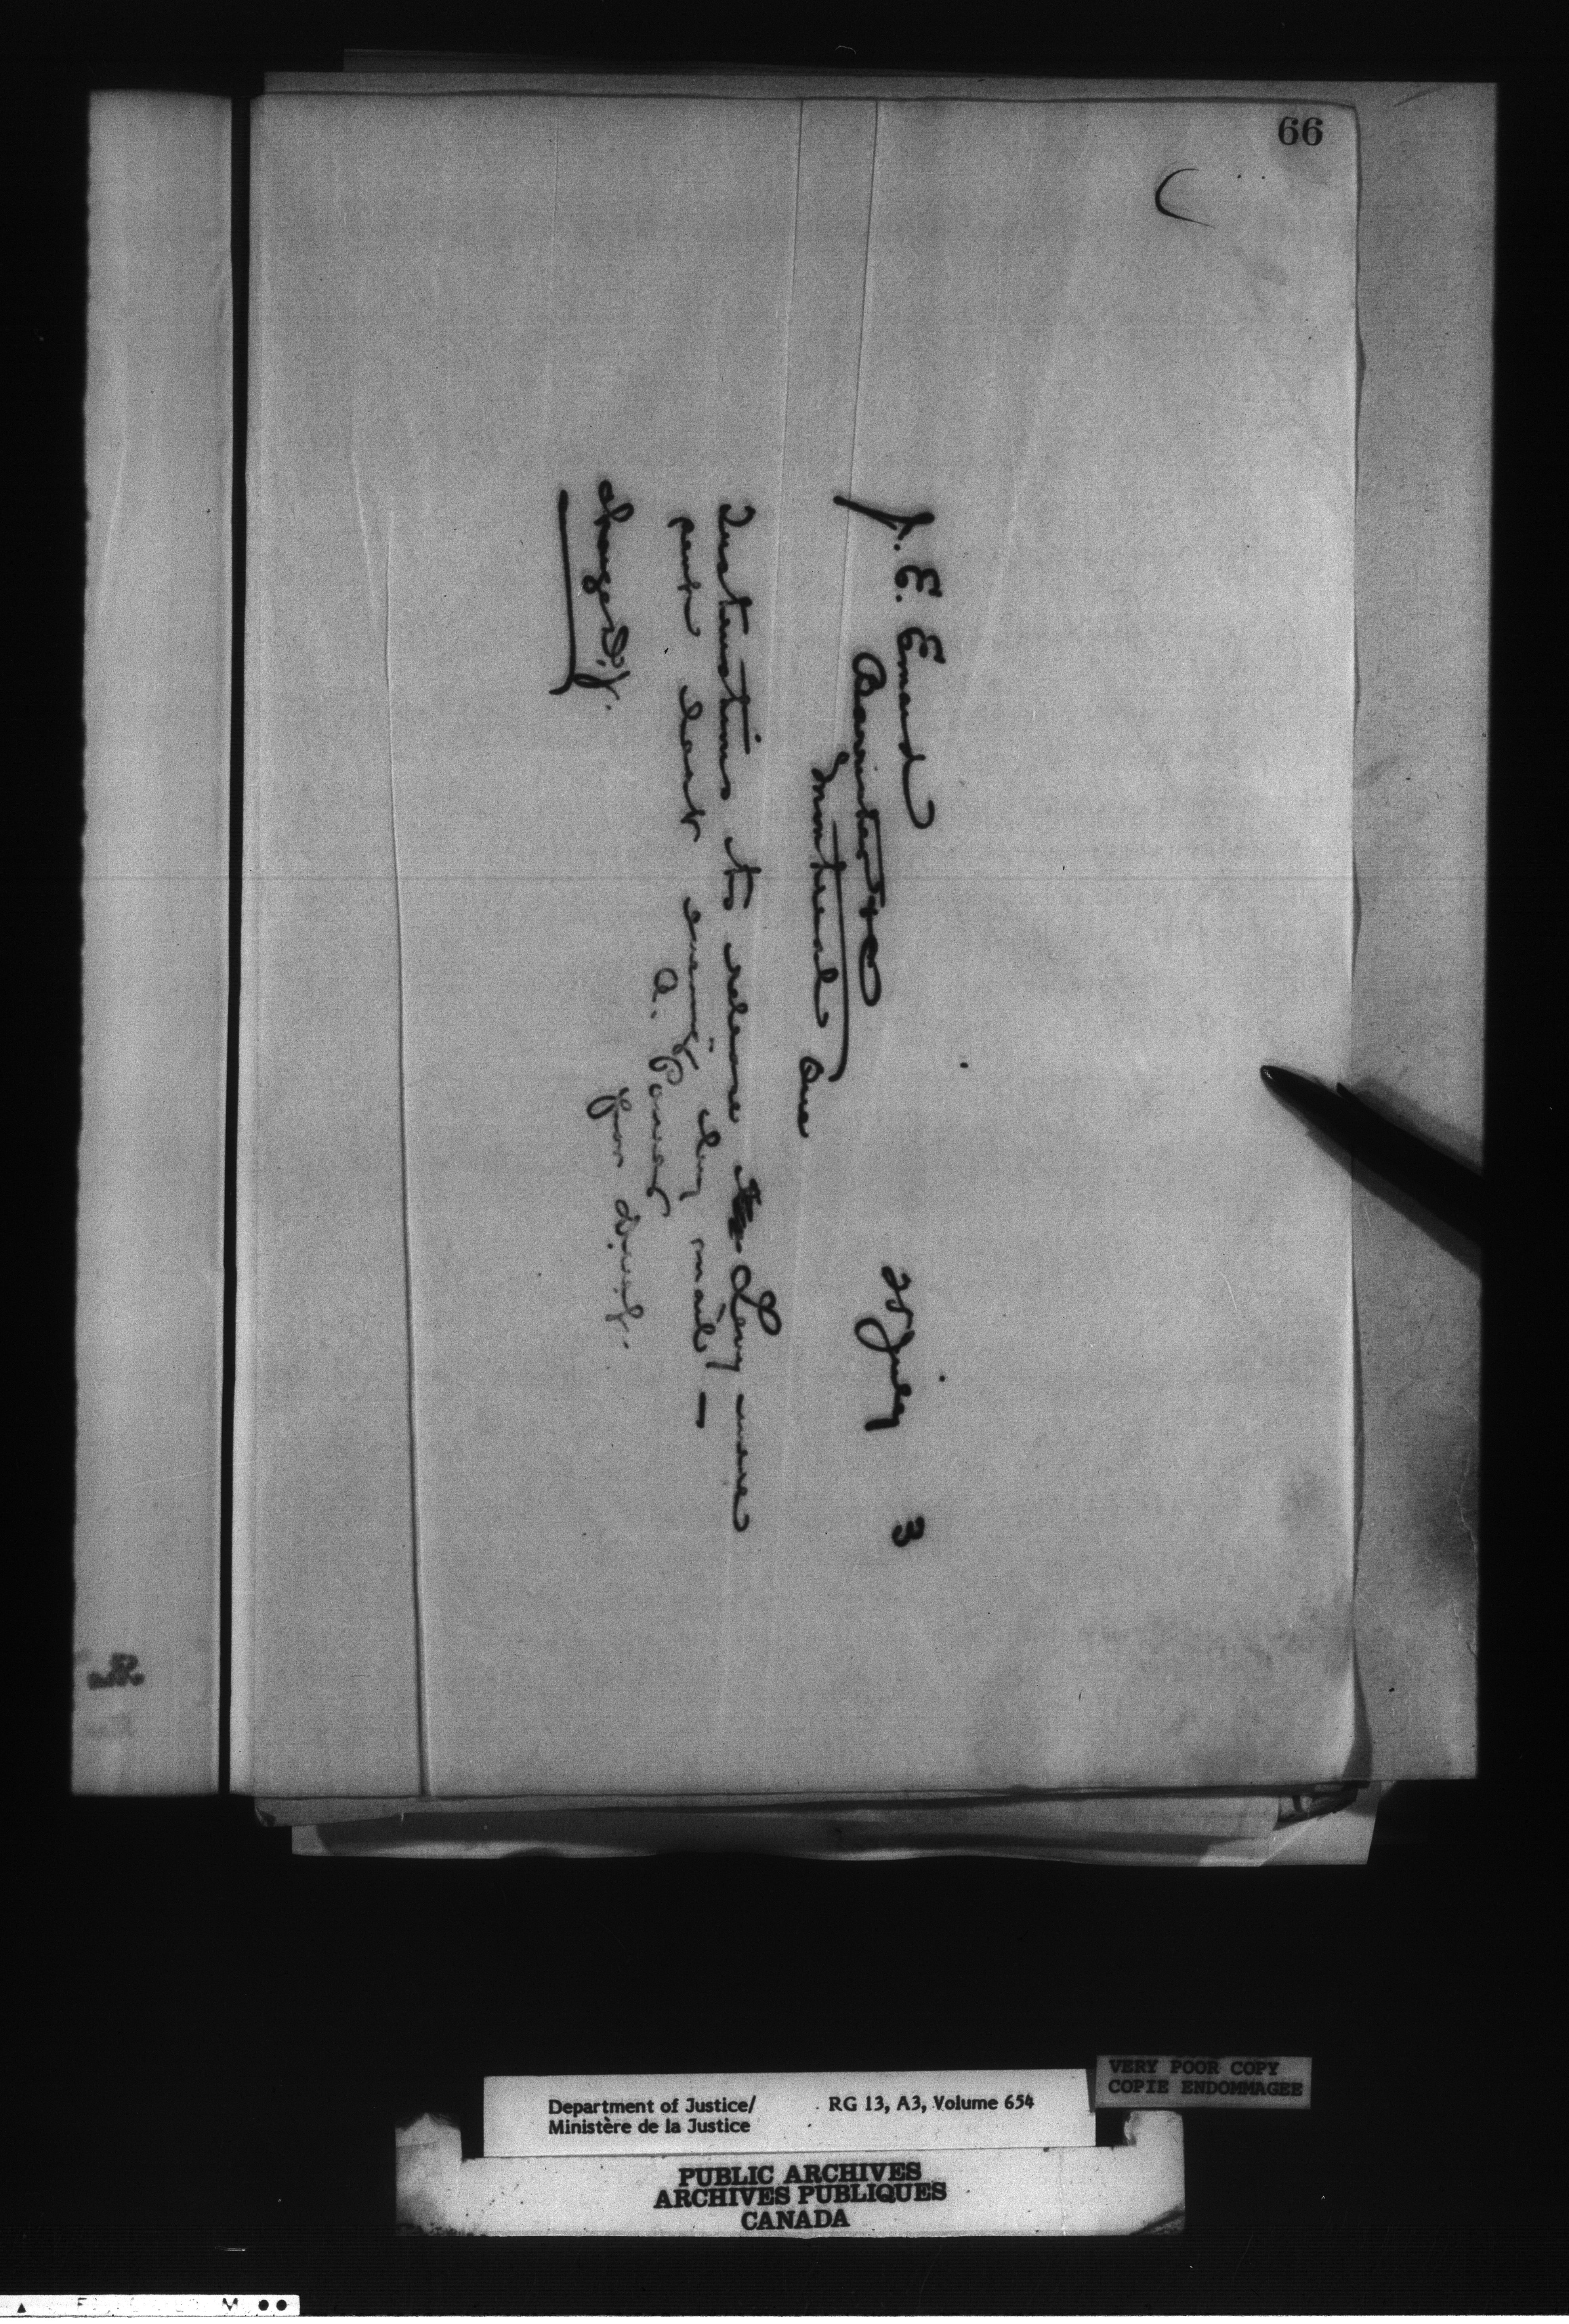 66
28 July 3
J. E. Emard
Barrister &c
Montreal Que
Instructions to release Levy were
sent last evening by mail, —
A. Power
for D.M.J.
charge D.J.
Department of Justice/
Ministère de la Justice
RG 13, A3, Volume 654
VERY POOR COPY
COPIE ENDOMMAGEE
PUBLIC ARCHIVES
ARCHIVES PUBLIQUES
CANADA